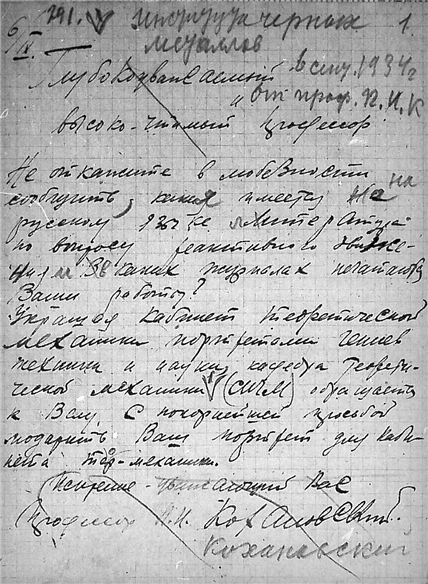 291. V института черных 1.
6/IV. металлов
Глубокоуважаемый в сму. 1934 г
и от проф. П. И. К
высоко-чтимый профессор
Не откажите в любезности
сообщить, какая имеется на
русском языке литература
по вопросу реактивного движе-
ния и в каких журналах печатались
Ваши работы?
Украшая кабинет теоретической
механики портретами гениев
техники и науки, кафедра теорети-
ческой механики V (СИЧМ) обращается
к Вам с покорнейшей просьбой
подарить Ваш портрет для каби-
нета теор-механики.
Искренне-уважающий Вас
Профессор П. И. Кохановский.
Кохановский